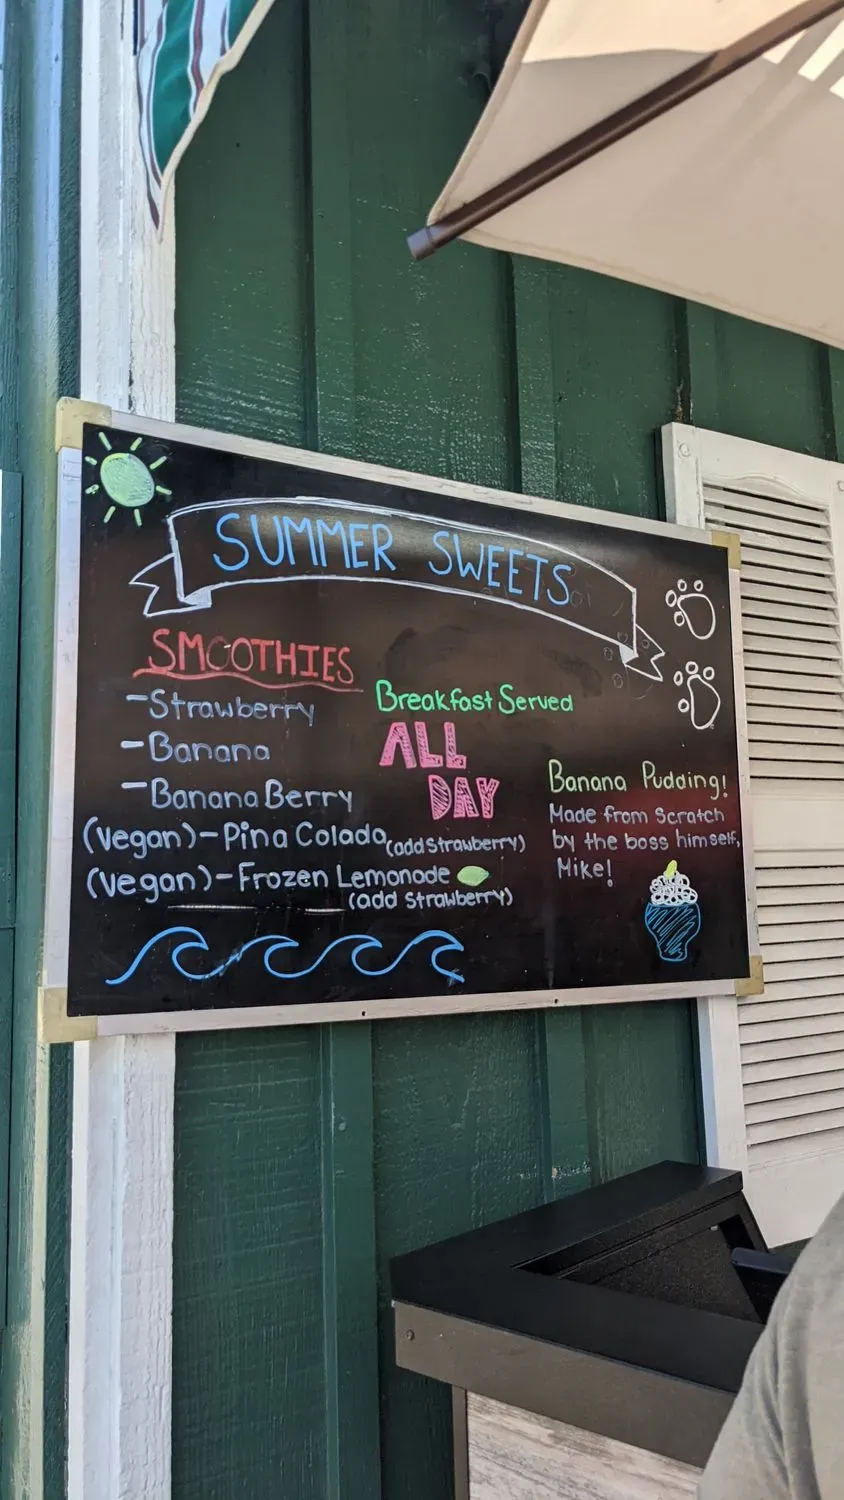 SUMMER SWEETS
SMOOTHIES
-Strawberry
-Banana
-Banana Berry
(Vegan)-Pina Colada (add strawberry)
(Vegan)-Frozen Lemonade
(add strawberry)
Breakfast Served
ALL
DAY
Banana Pudding!
Made from Scratch
by the boss himself,
Mike!